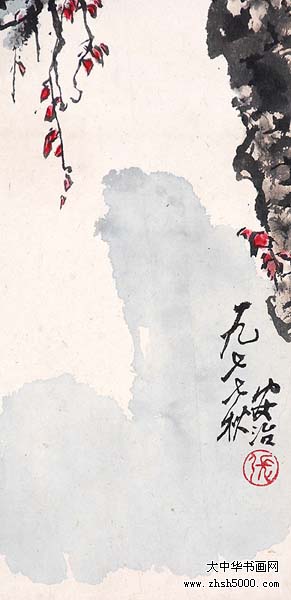 一九七七秋
安治
张
大中华书画网
www.zhsh5000.com